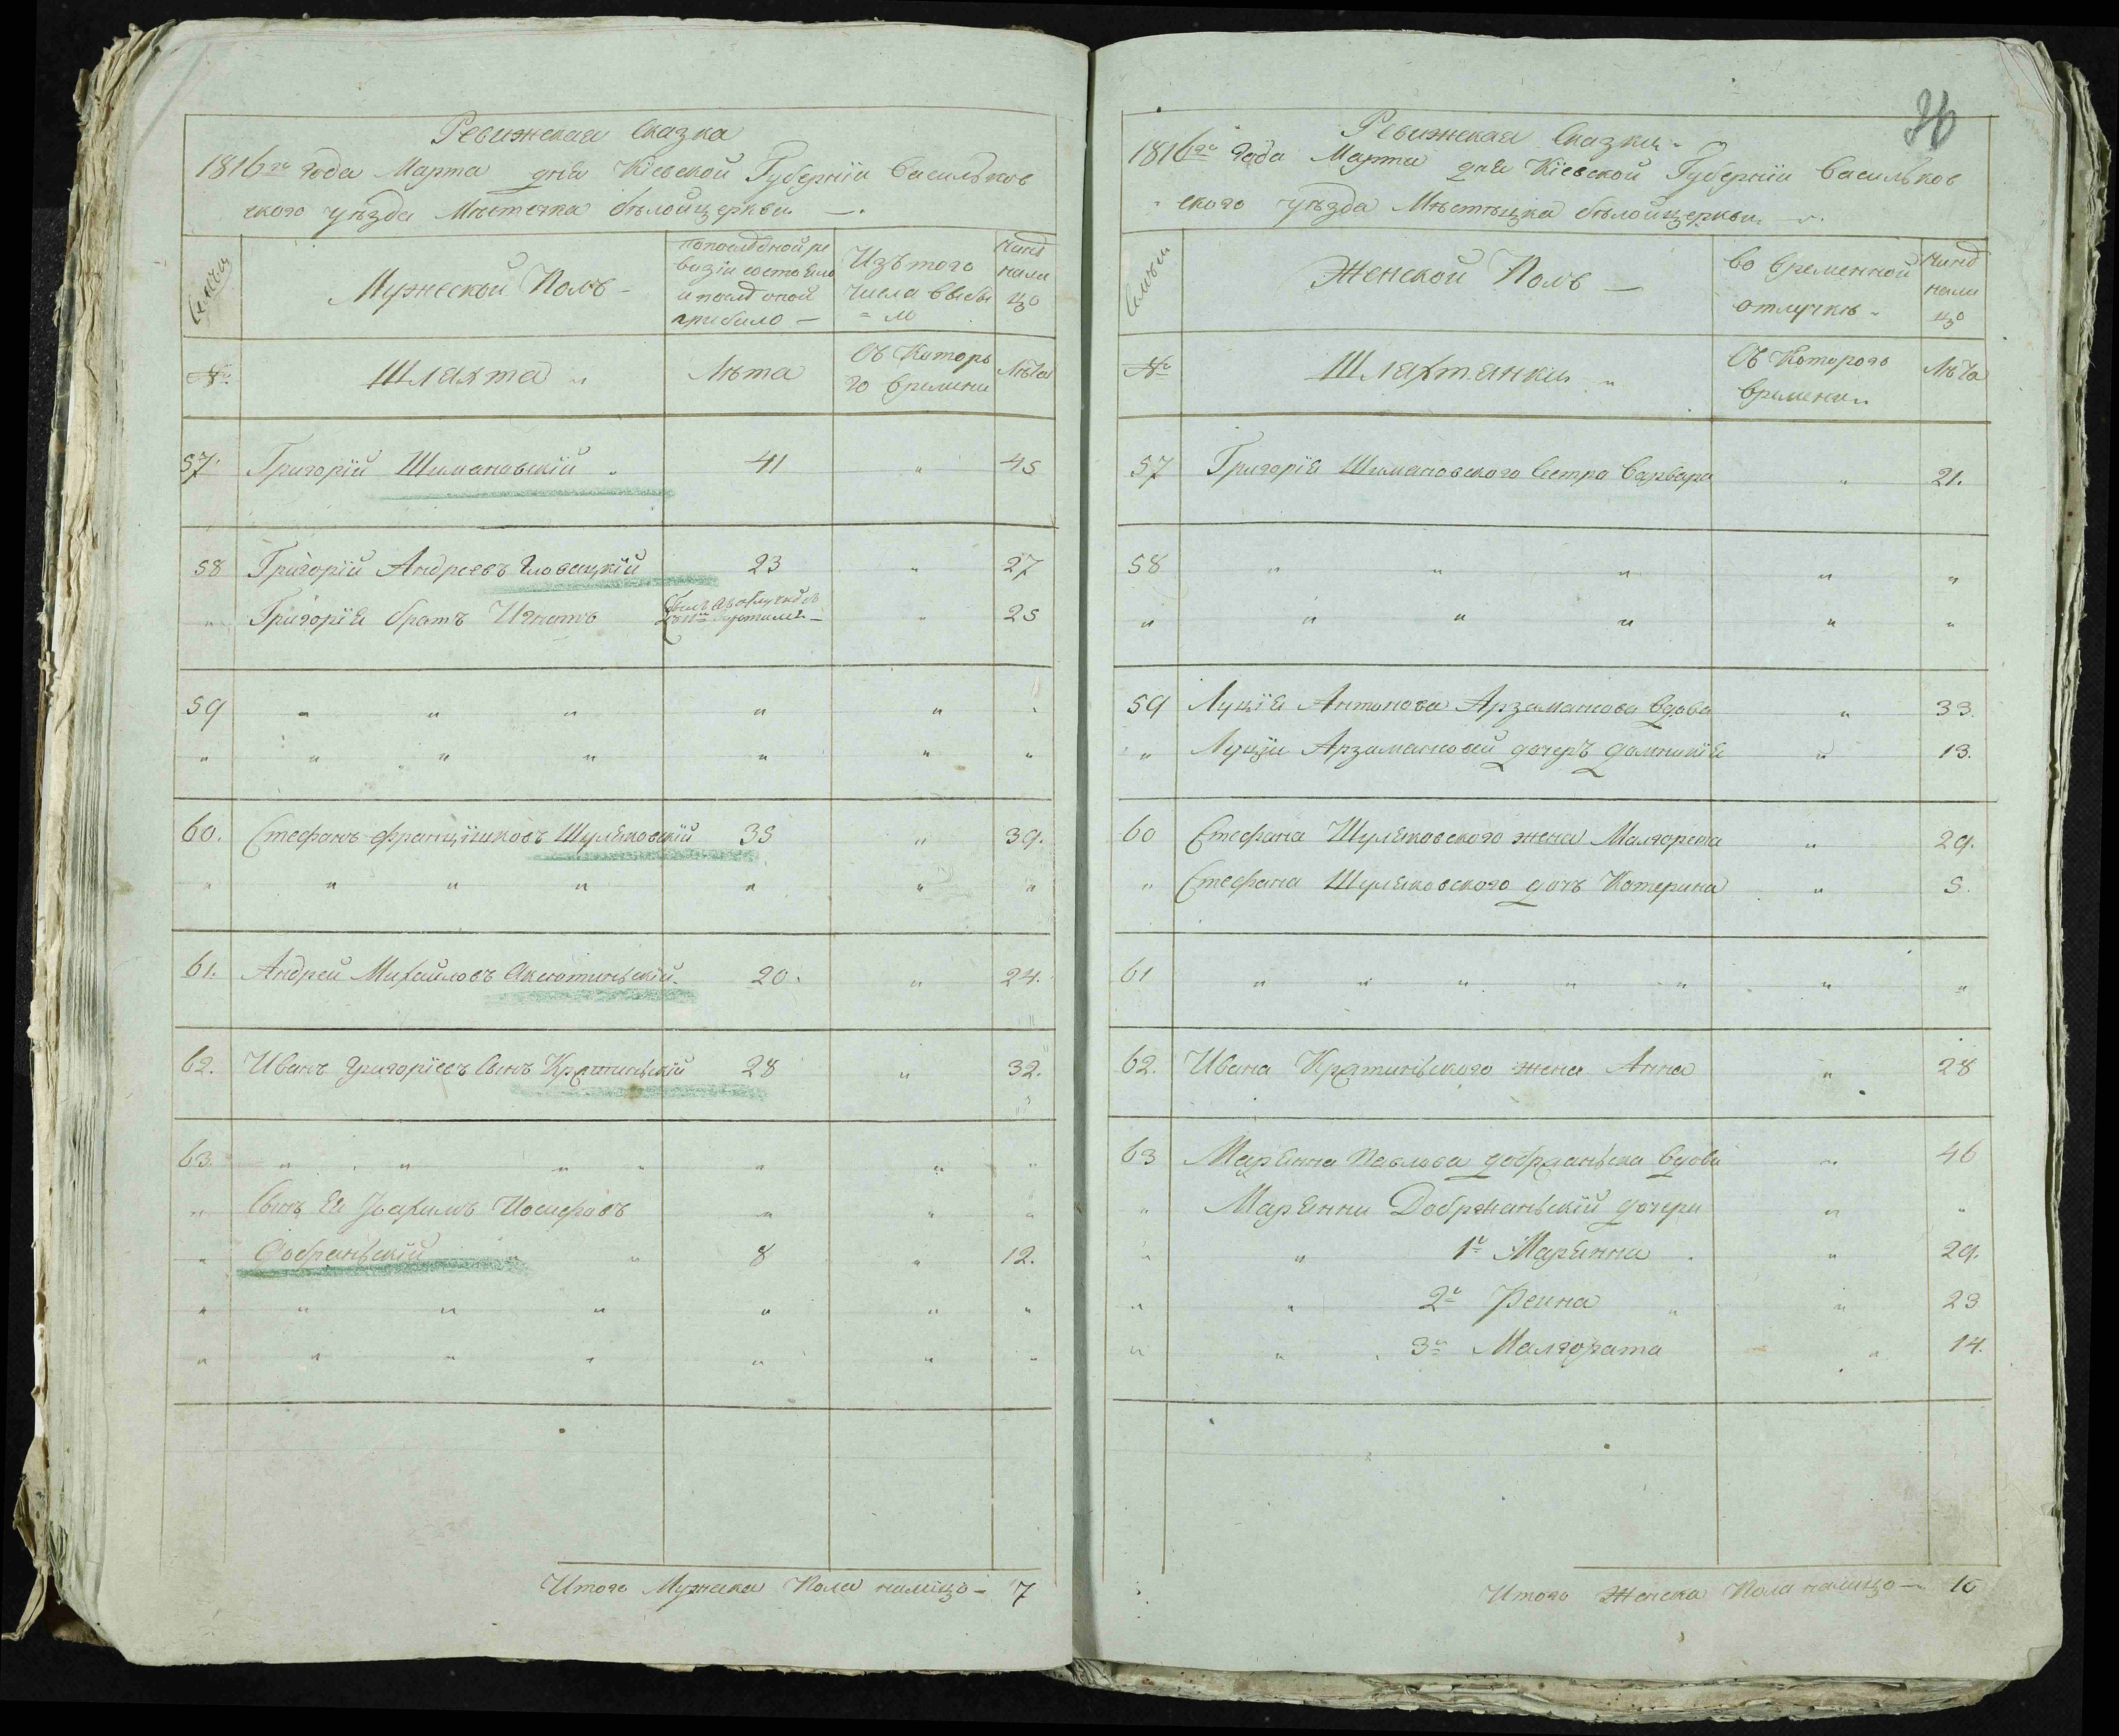 Ревижская Сказка
1816го года Марта дня Кіевской Губерніи Васильков
ского уѣзда Мѣстечка бѣлойцеркви —.
Мужеской Полъ —
попослѣдной ре
визіи состояло
и послѣ оной
прибило —
Изъ того
числа выбы
= ло
нинѣ
нали
цо
№
Шляхта „
Лѣта
Съ Которо
го времени
Лѣта
57. Григорій Шимановскій . 41 „ 45
58 Григорій Андреевъ Гловацкій 23 „ 27
„ Григорія братъ Игнатъ „ 25
59 „ „ „ „ „ „
„ „ „ „ „ „ „
60. Стефанъ Францішковъ Шуляковскій 35 „ 39.
„ „ „ „ „ „ „
61. Андрей Михайловъ Аксютинскій. 20. „ 24.
62. Иванъ Григоріевъ Сынъ Кратинскій 28 „ 32.
63. „ „ „ „ „ „ „
„ Сынъ Ея Іоахимъ Иосифовъ „ „ „
„ Добранскій „ „ 8 „ 12.
„ „ „ „ „ „ „
„ „ „ „ „ „ „
Итого Мужеска Пола налицо — 7
36
Ревижская Сказка
1816го года Марта дня Кіевской Губерніи Васильков
ского уѣзда Мѣстецка бѣлойцеркви
Женской Полъ —
Во временной
отлучкѣ „
нинѣ
нали
цо
№
Шляхтянки „
Съ Которого
времени
Лѣта
57 Григорія Шимановского Сестра Варвара „ 21.
58 „ „ „ „ „
„ „ „ „ „ „
59 Луція Антонова Арзаманова вдова „ 33.
„ Луціи Арзамановай дочеръ Домникія „ 13.
60 Стефана Шуляковского жена Малгорета „ 29.
„ Стефана Шуляковского дочъ Катерина „ 5.
61 „ „ „ „ „ „ „
62. Ивана Кратинского жена Анна „ 28
63 Маріянна Павлова добранска вдова „ 46
„ Маріянни Добржанскій дочери „ „
„ „ 1я Маріянна „ 29.
„ „ 2я Реина „ „ 23
„ „ 3я Малгората „ 14.
Итого Женска Пола налицо — 10